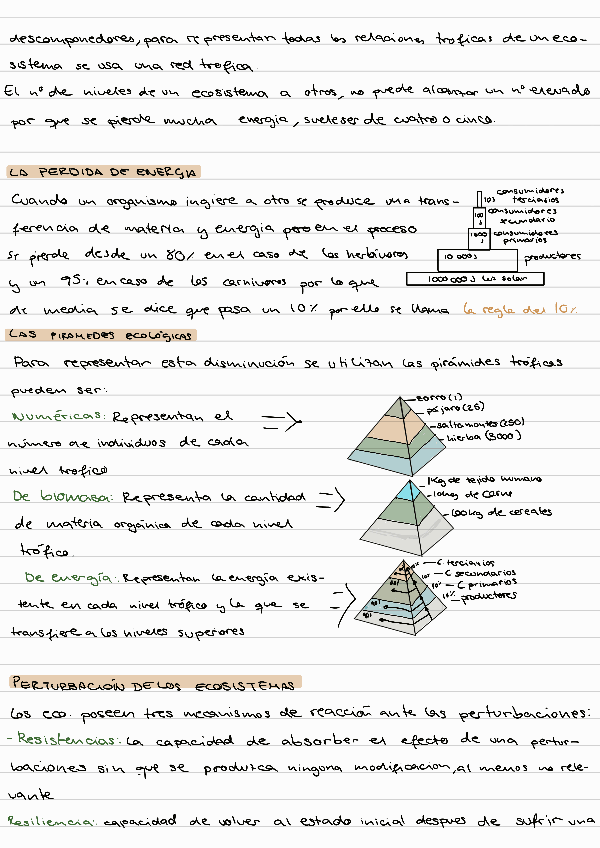 descomponedores, para representar todas las relaciones troficas de un eco-
sistema se usa una red trofica.
El nº de niveles de un ecosistema a otros, no puede alcanzar un nº elevado
por que se pierde mucha energia, suele ser de cuatro o cinco.
LA PERDIDA DE ENERGIA
Cuando un organismo ingiere a otro se produce una trans-
ferencia de materia y energia pero en el proceso
se pierde desde un 80% en el caso de los herbívoros
y un 95% en caso de los carnívoros por lo que
de media se dice que pasa un 10% por ello se llama la regla del 10%.
10J consumidores terciarios
100 J consumidores secundario
1000 J consumidores primarios
10 000 J productores
1000 000 J luz solar
LAS PIRAMEDES ECOLÓGICAS
Para representar esta disminución se utilizan las pirámides tróficas
pueden ser:
Numéricas: Representan el
número de individuos de cada
nivel trofico
zorro (1)
pájaro (25)
saltamontes (250)
hierba (3000)
De biomasa: Representa la cantidad
de materia orgánica de cada nivel
trófico.
1Kg de tejido humano
10kg de carne
100kg de cereales
De energía: Representan la energía exis-
tente en cada nivel trófico y la que se
transfiere a los niveles superiores
C terciarios
10% C secundarios
10% C primarios
10% productores
PERTURBACIÓN DE LOS ECOSISTEMAS
Los eco. poseen tres mecanismos de reacción ante las perturbaciones:
- Resistencias: La capacidad de absorber el efecto de una pertur-
baciones sin que se produzca ninguna modificacion, al menos no rele-
vante
Resiliencia: capacidad de volver al estado inicial despues de sufrir una